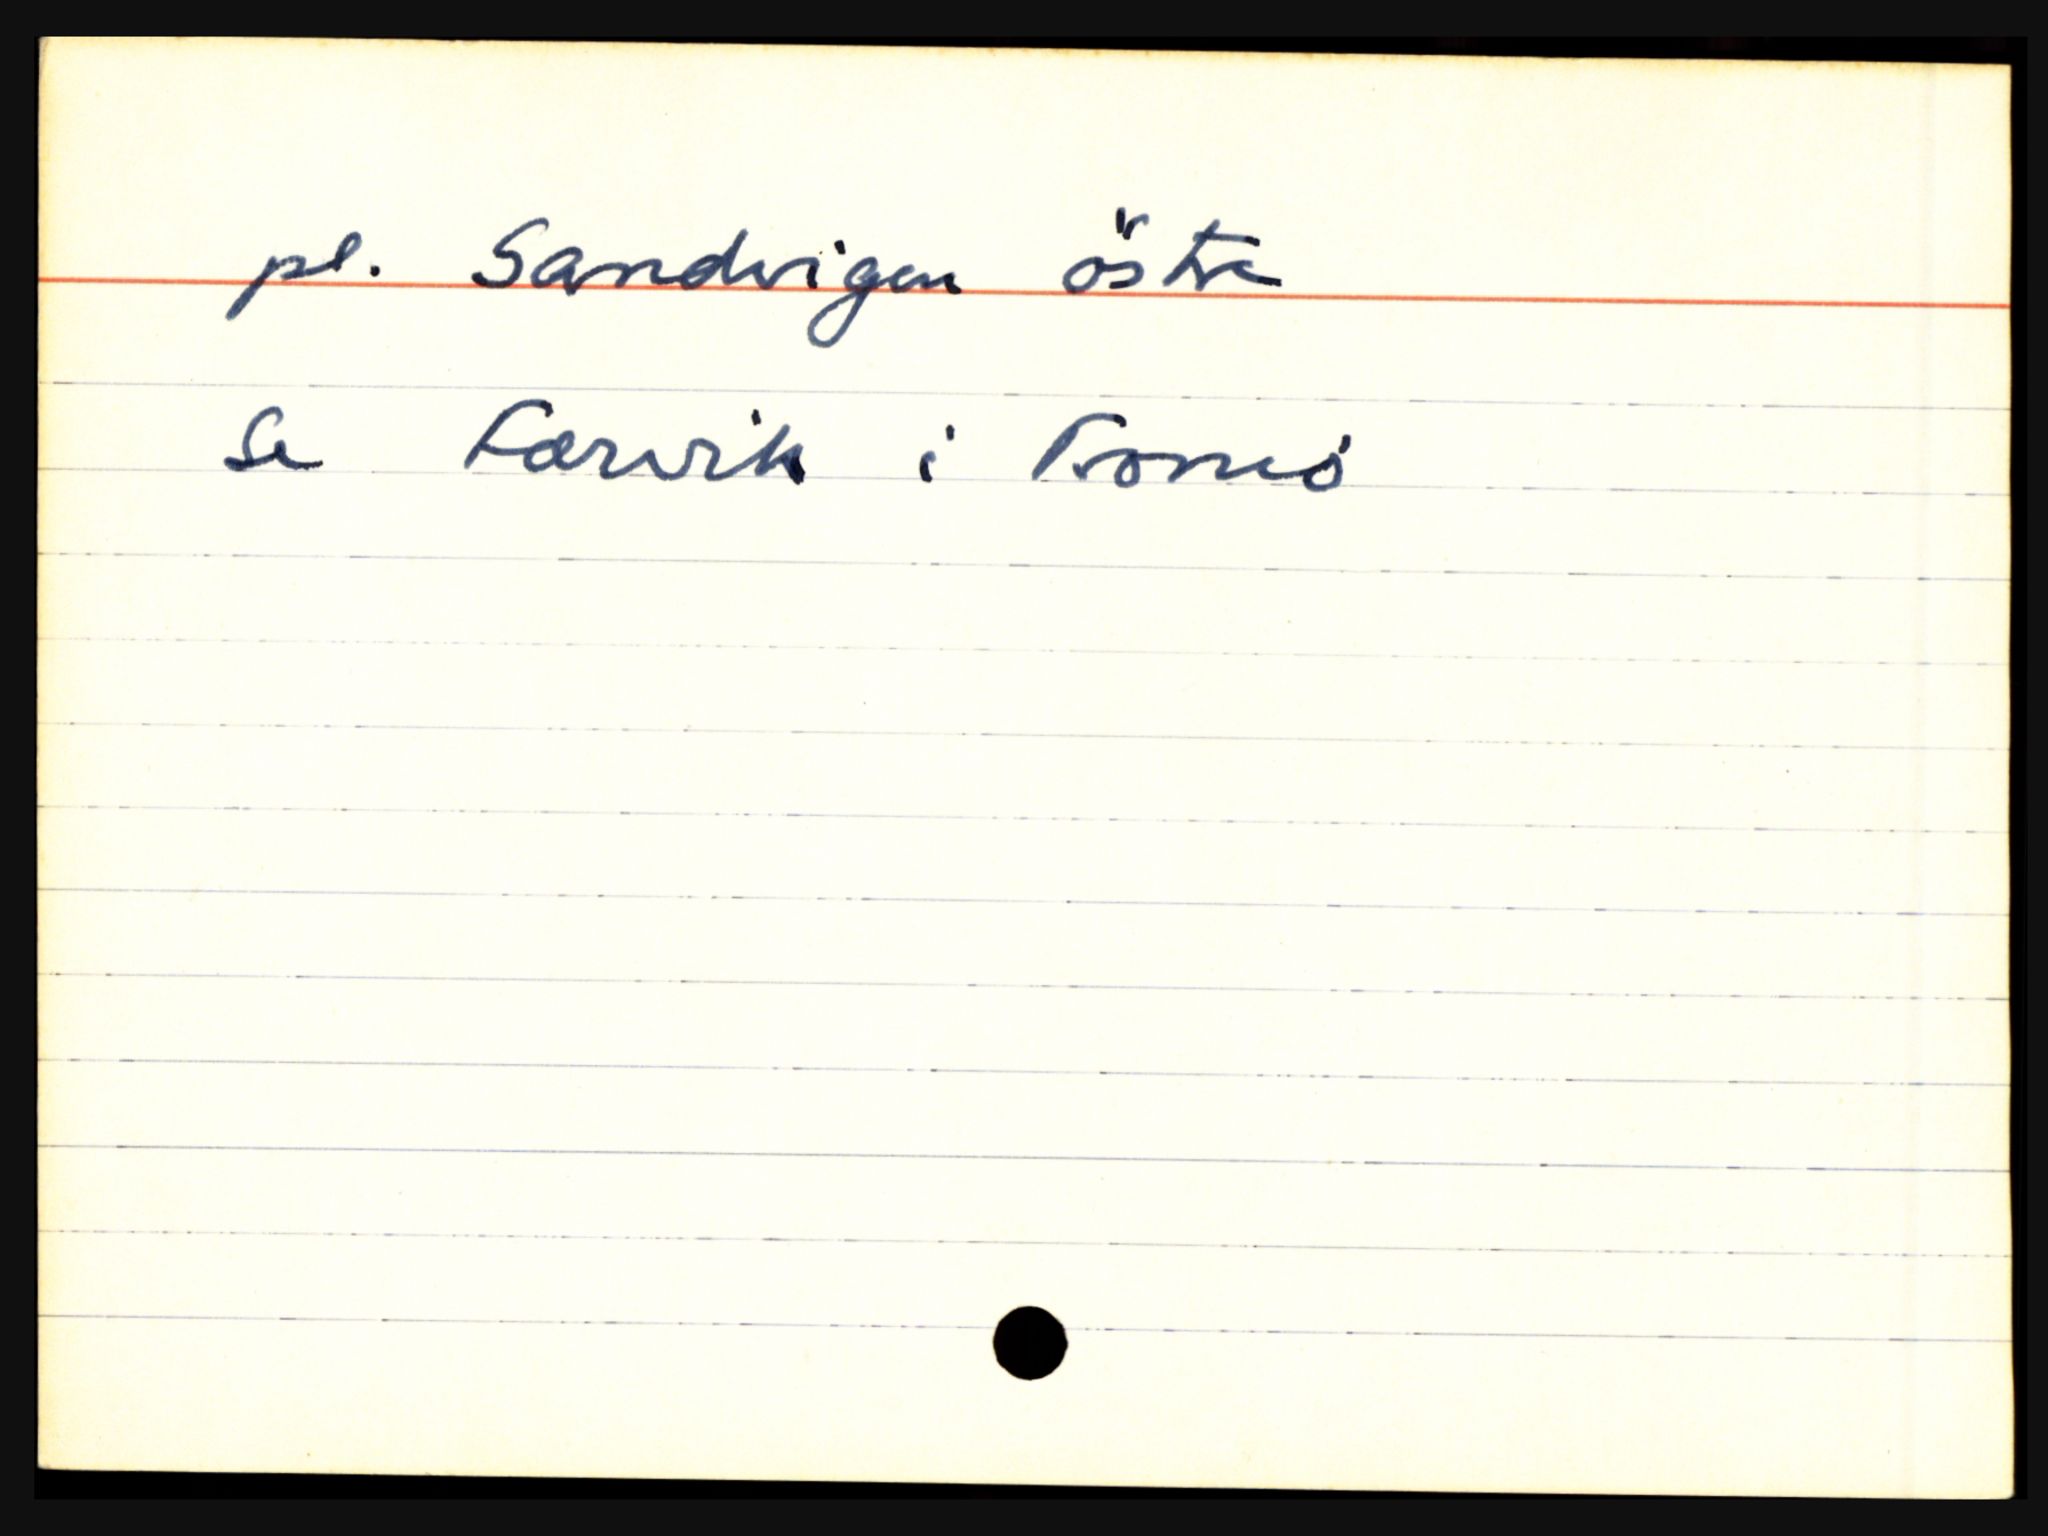 pl. Sandvigen östre
se Færvik i Tromö